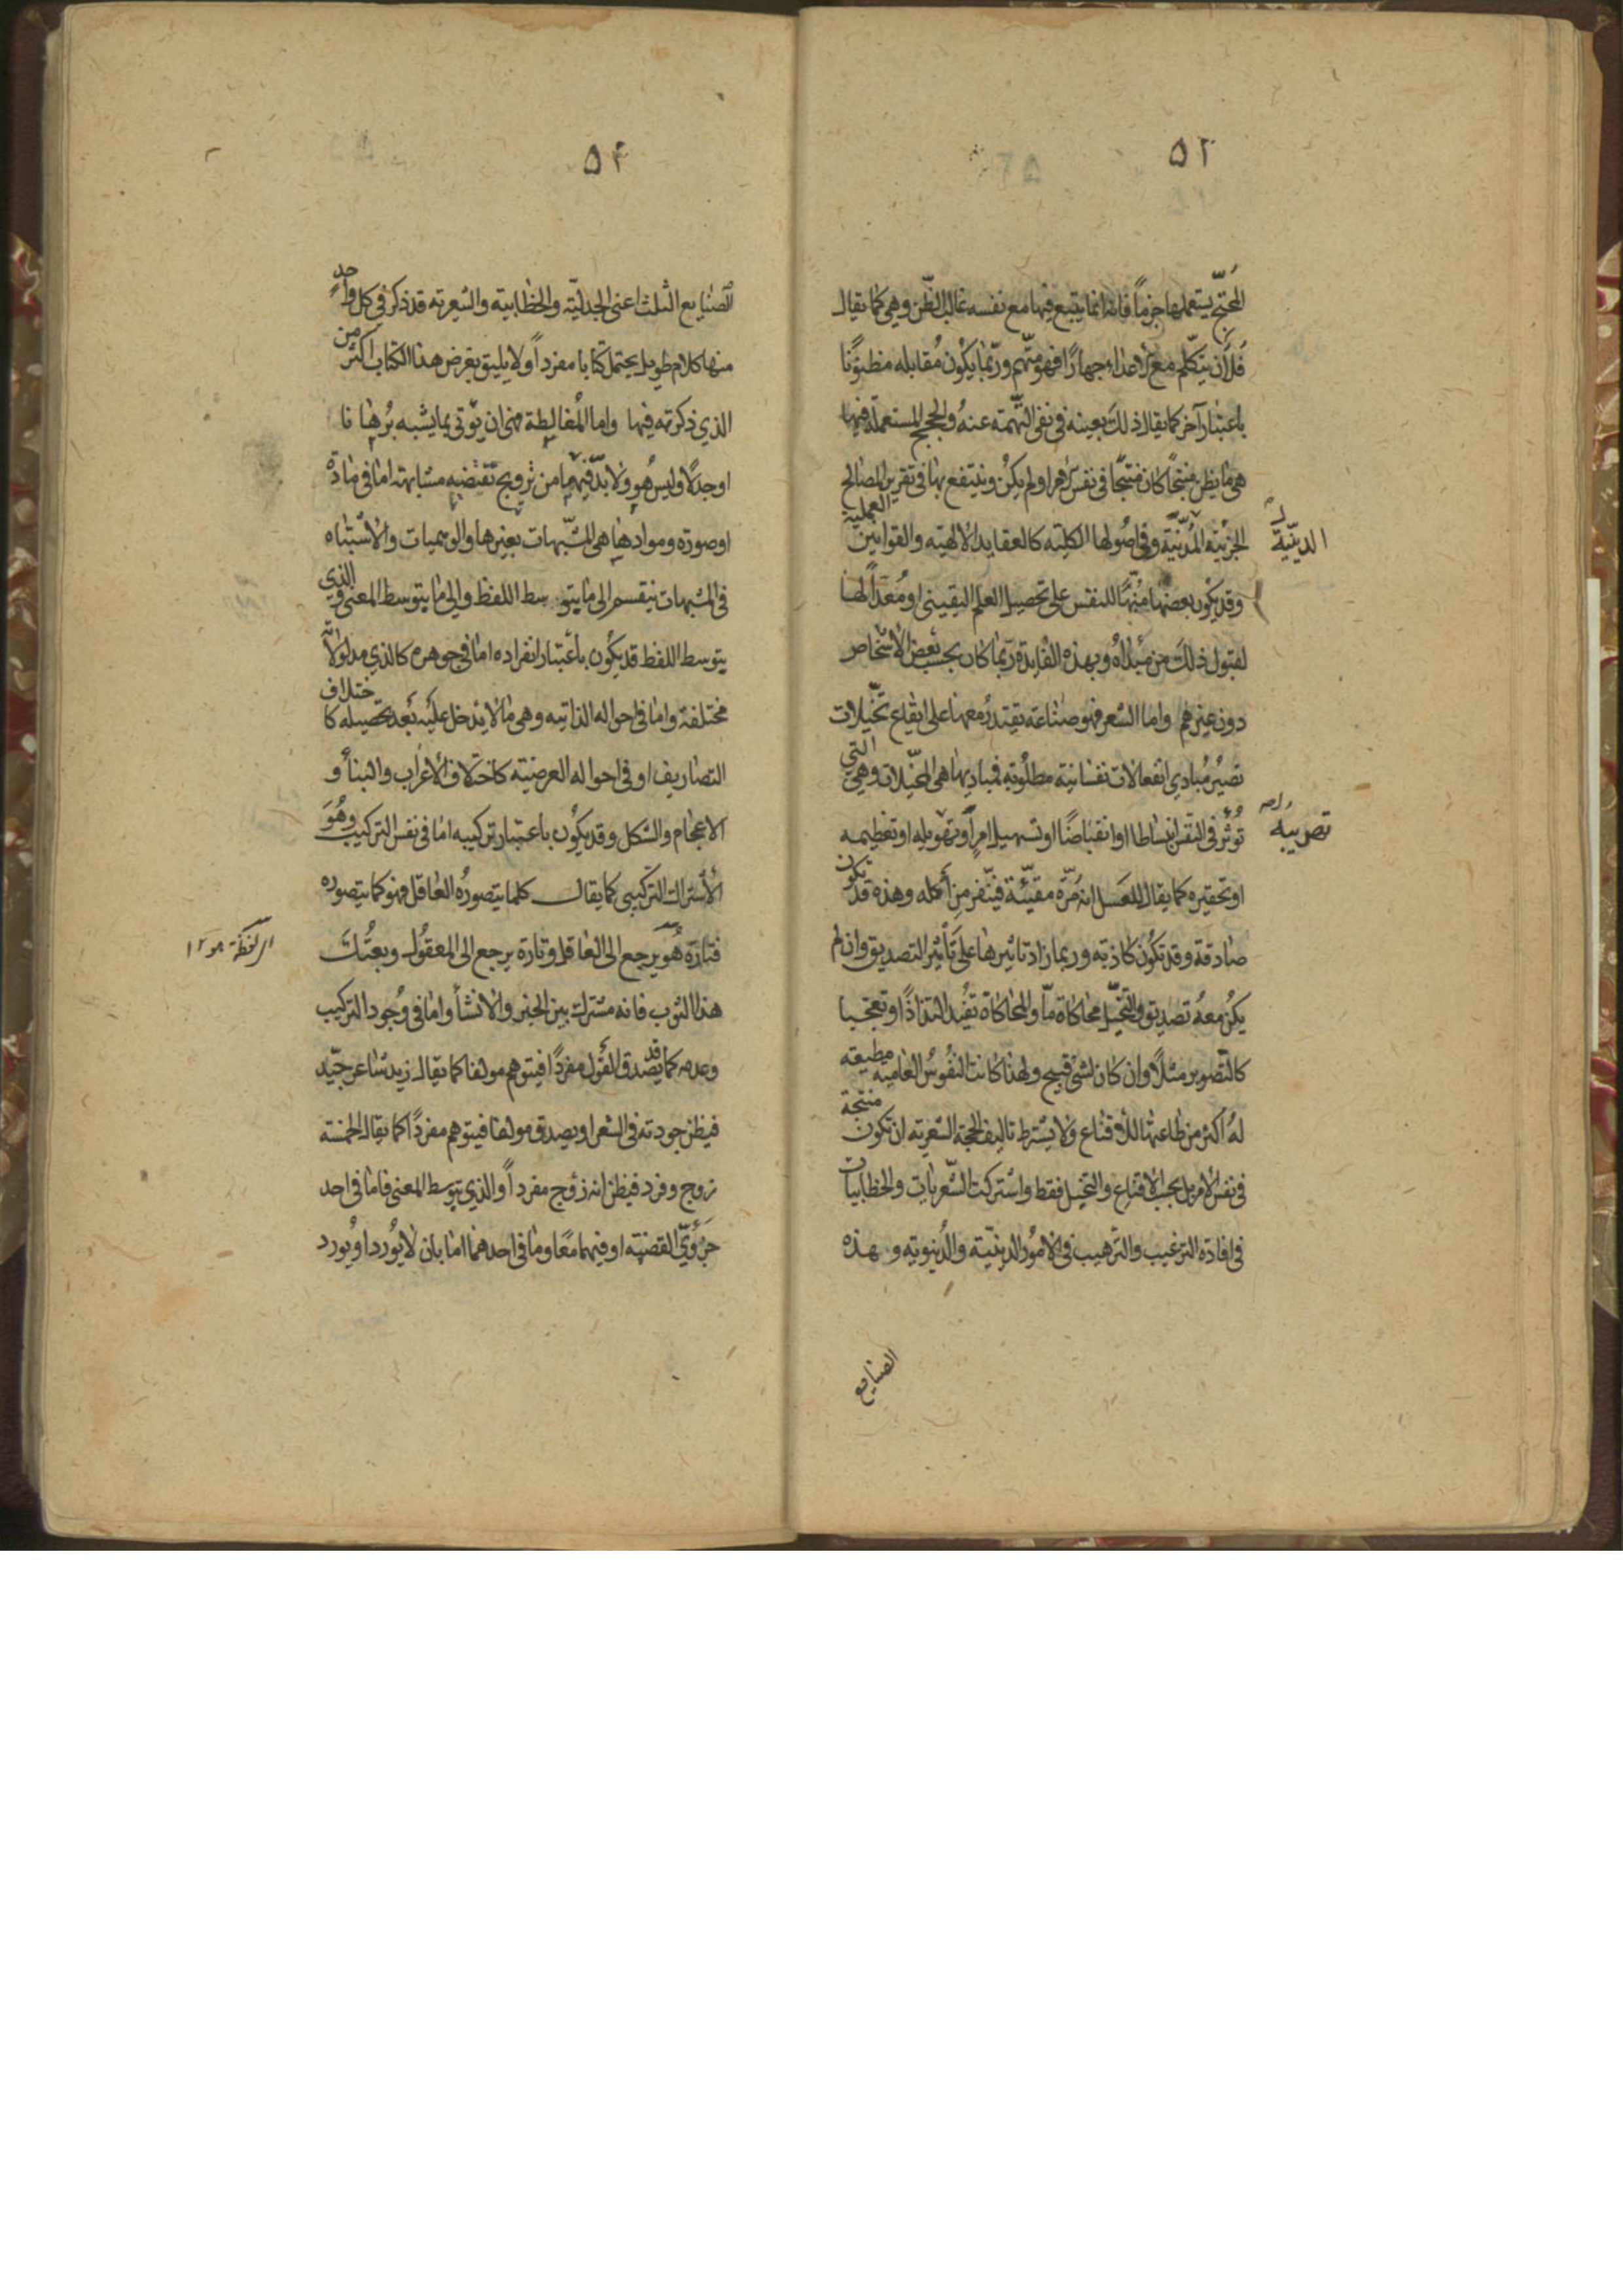 ٥٢
المحتج يستعملها جزماً فانه انما يتبع فيها مع نفسه غالب الظّن وهي كما يقال
فلان يتكلّم مع الاعداء جهارًا فهو متّهم وربّما يكون مُقابله مظنونًا
باعتبار آخر كما يقال ذلك بعينه في نفي التهمة عنهُ والحجج المستعملة فيها
هي ما يظن منتجًا كان منتجًا في نفس الامر او لم يكن وينتفع بها في تقرير المصالح
الجزئية المدنيّة وفي اصُولها الكلية كالعقايد الالهية والقوانين العملية
الدينيّة
وقد يكون بعضها منبّهًا للنفس على تحصيل العلم اليقيني او مُعدّاً لها
لقبول ذلك من مبدأه وبهذه الفايدة ربّما كان بحسب بعض الاشخاص
دون غيرهم واما الشعر فهو صناعة يقتدرُ معها على ايقاع تخيّلات
تصيرُ مبادي انفعالات نفسانية مطلوبة فمباديها هي المخيّلات وهي التي
تؤثر في النفس انبساطا او انقباضًا او تسهيل امرٍ او تهويله او تعظيمه
تصويبه
او تحقيره كما يقال للعسل انه مُرّة مقيّئة فيتنفّر من أكله وهذه قد تكون
صادقة وقد تكون كاذبة وربما زاد تاثيرها على تأثير التصديق وان لم
يكن معهُ تصديق والتخيّل محاكاة مّا والمحاكاة تفيد التذاذًا او تعجبا
كالتّصوير مثلًا وان كان لشئ قبيح ولهذا كانت النفُوسُ العامية مطيعة
لهُ اكثر من طاعتها للأقناع ولا يشترط تاليف الحجة الشعرية ان تكون منتجة
في نفس الامر بل بحسب الاقناع والتخييل فقط واشتركت الشّعريات والخطابيات
في افادة الترغيب والترهيب في الامُور الدينيّة والدُّنيويّة و بهذه
الصنايع
٥٤
الصّنايع الثلث اعني الجدليّة والخطابية والشعرية قد ذكر في كل واحدٍ
منها كلام طويل يحتمل كتابا مفرداً ولا يليق بغرض هذا الكتاب اكثر من
الذي ذكرته فيها واما المُغالطة فهي ان يؤتى بما يشبه بُرهانا
او جدلًا وليس هُو ولا بدّ فيها من ترويج تقتضيه مشابهة اما في مادّة
او صورة وموادها هي المشبّهات بغيرها والوهميات والاشتباه
في المشبهات ينقسم الى ما يتوسط اللفظ والى ما يتوسط المعنى والذي
يتوسط اللفظ قد يكون باعتبار انفراده اما في جوهره كالذي مدلولاتُه
مختلفة واما في احواله الذاتيه وهي ما لا يدخل عليه بعد تحصيله كاختلاف
التصاريف او في احواله العرضية كاختلاف الأعراب والبنأ و
الاعجام والشكل وقد يكون باعتبار تركيبه اما في نفس التركيب وهُوَ
الأشتراك التركيبي كما يقال كلما يتصورُه العاقل فهو كما يتصوره
فتارة هو يرجع الى العاقل وتارة يرجع الى المعقُول وبعتُكَ
هذا الثوب فانه مشترك بين الخبر والانشأ واما في وجود التركيب
وعدمه كما قد يصدق القول مفردًا فيتوهم مولفا كما يقال زيد شاعر جيّد
فيظن جودته في الشعر او يصدق مولفا فيتوهم مفردًا كما يقال الخمسة
زوج وفرد فيظن انه زوج مفرداً والذي يتوسط المعنى فاما في احد
جزؤيّ القضية او فيهما معًا وما في احدهما اما بان لا يُورد او يُورد